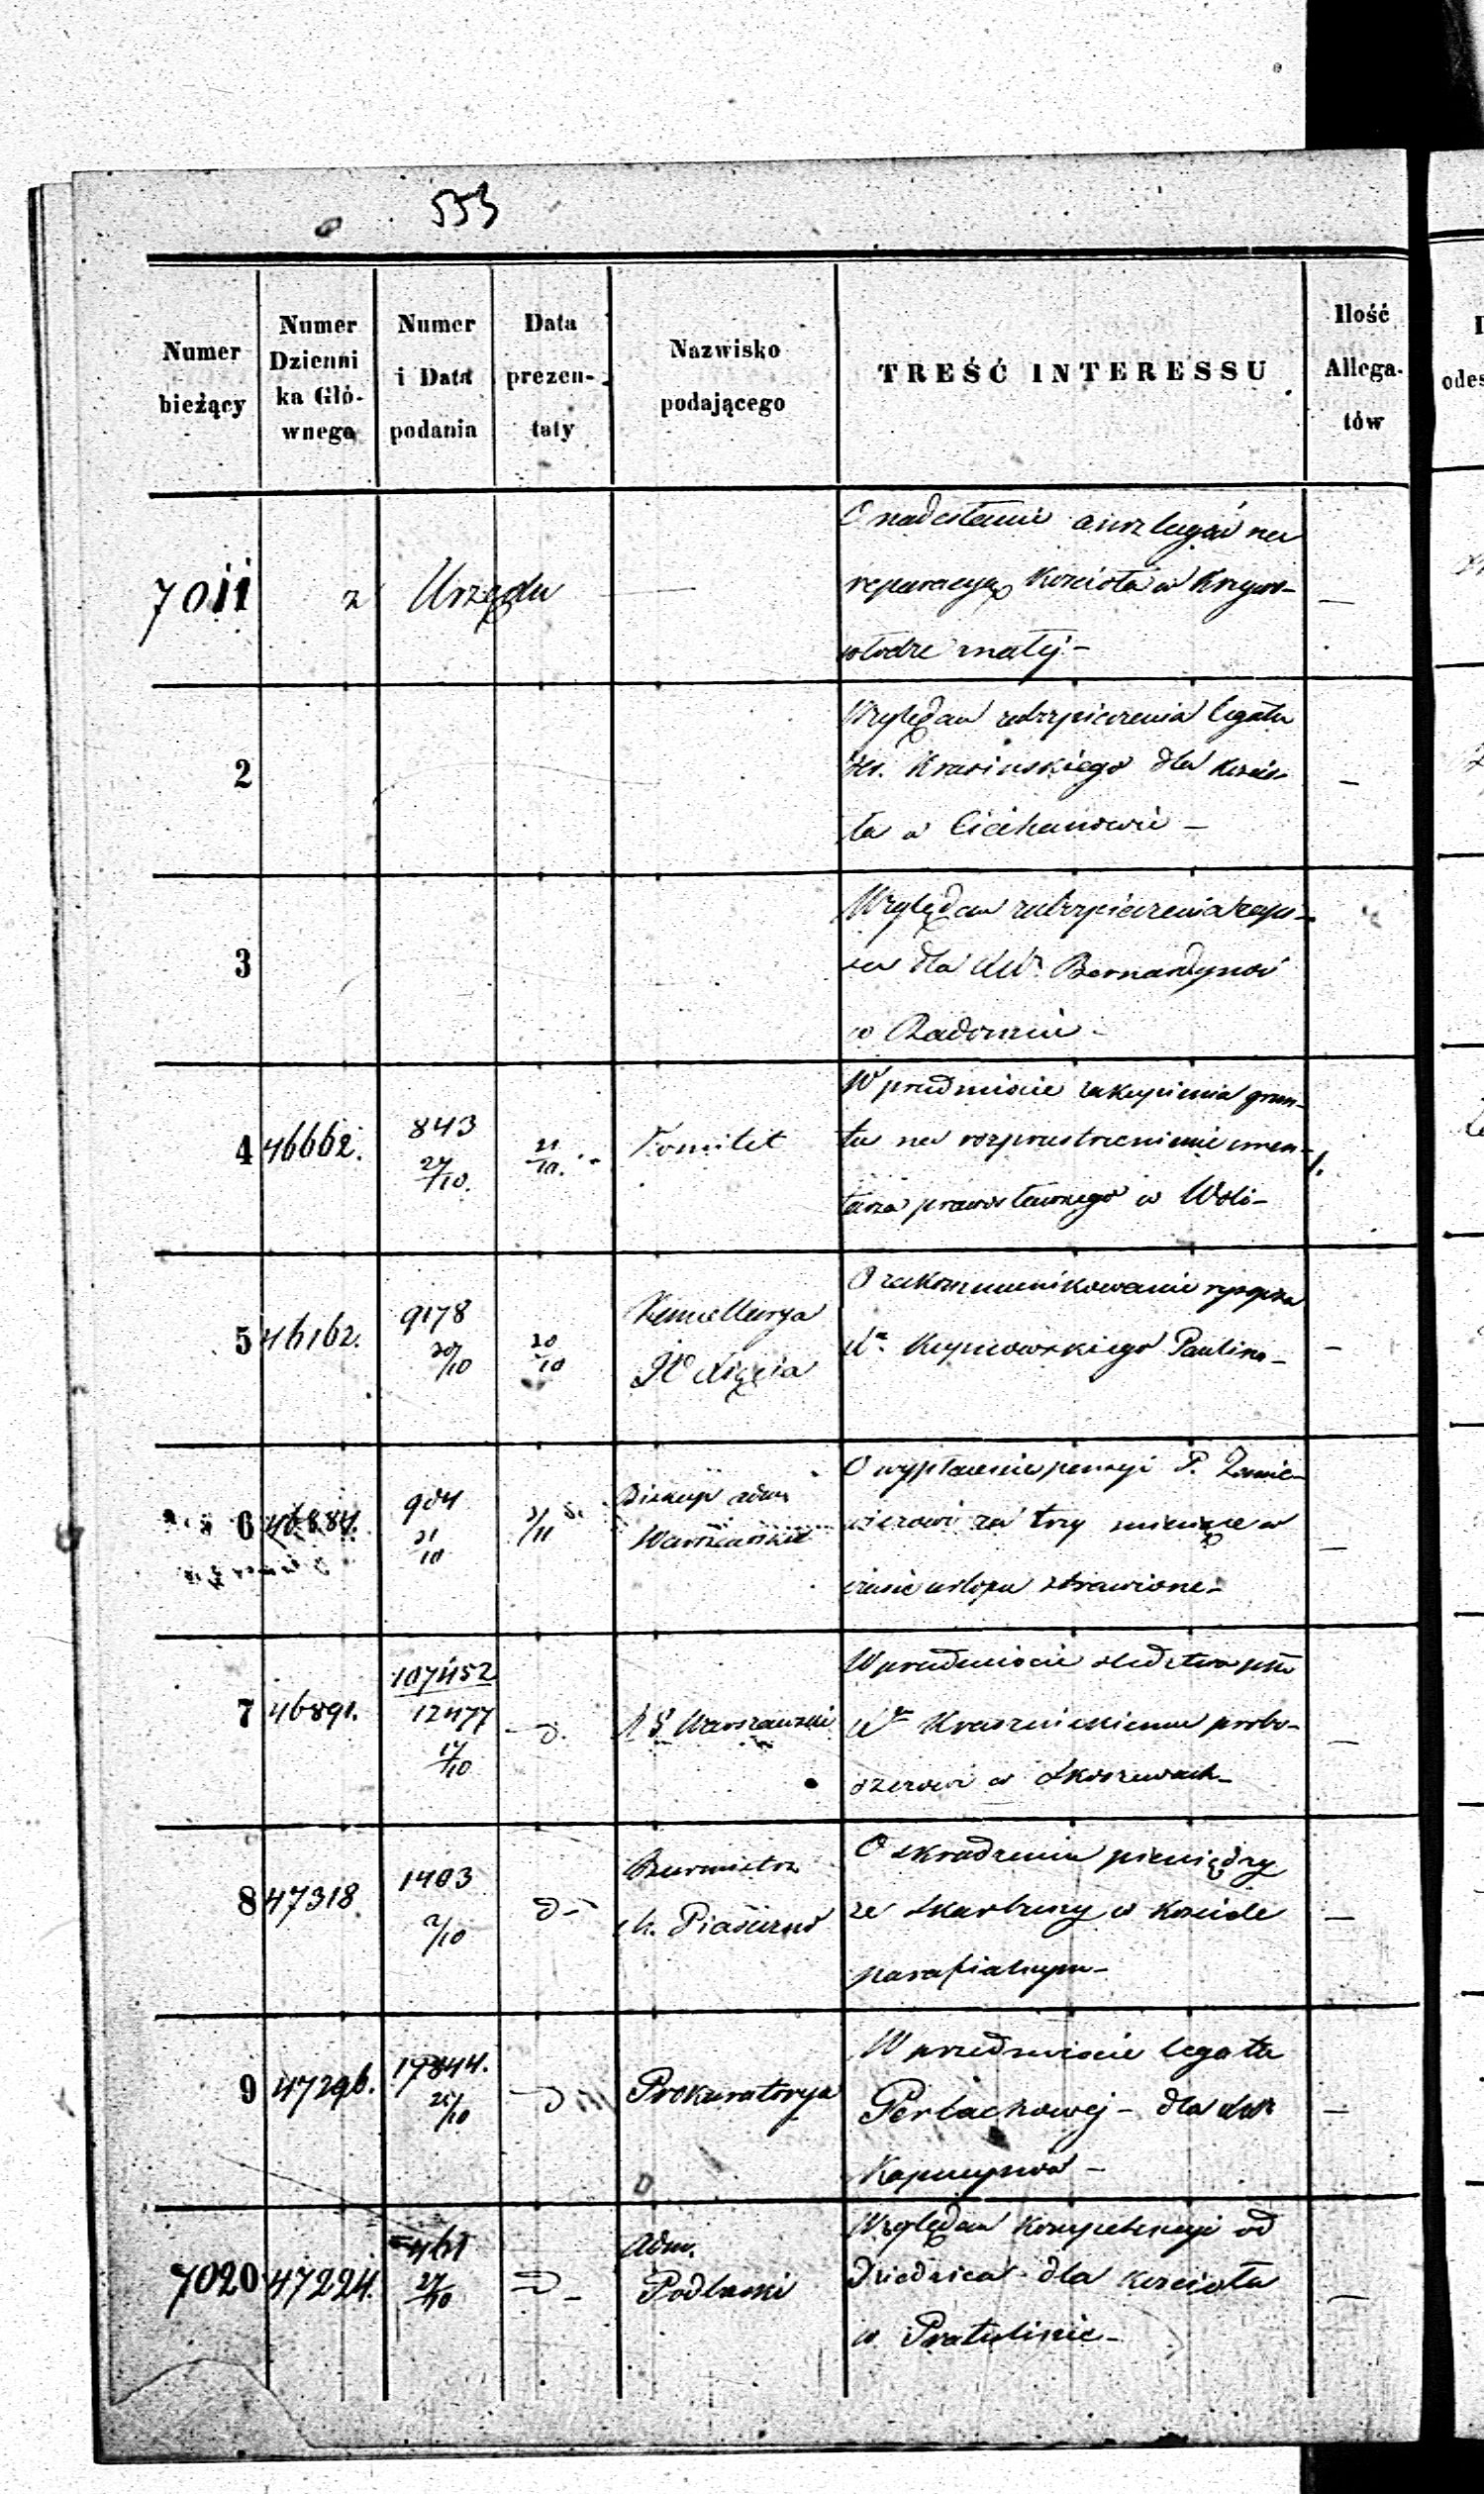 553
Numer bieżący
Numer Dzienni ka Głó- wnego
Numer i Data podania
Data prezen- taty
Nazwisko podającego
TREŚĆ INTERESSU
Ilość Allega- tów
7011 z Urzędu —
O nadesłanie na
reparacyą Kościoła w Krzywo-
włodze małej —
2
Względem zabezpieczenia legatu
Krasińskiego dla Kościo-
ła w Ciechanowie —
3
Względem zabezpieczenia zapi-
su dla Bernardynów
w Radomiu —
4 46662. 843 27/10. 21/10. Komitet
W przedmiocie zakupienia grun-
tu na rozprzestrzenienie cmen-
tarza prawosławnego w Woli — 1.
5 46162. 9178 20/10 20/10
Kancellarya
JO Xięcia
O zakommunikowanie
Xa. Kupnowskiego Paulina —
6 46884. 904 31/10 3/11
Biskup adm
Warszawski
O wypłacenie pensyi P.
za trzy miesiące w
czasie urlopu strawione —
7 46891. 107452 12477 17/10 — d.
R G Warszawski
W przedmiocie śledztwa pko
Xu pробo-
szczowi w Skoszewach —
8 47318 1403 2/10 d —
Burmistrz
m. Piaseczno
O skradzeniu pieniędzy
ze skarbony w Kościele
parafialnym —
9 47296. 17844. 25/10 — d
Prokuratorya
W przedmiocie legatu
Perlachowej — dla XX
Kapucynów —
7020 47224. 461 27/10 — d —
Adm.
Podlaski
Względem Kompetencyi od
Dziedzica dla Kościoła
w Pratulinie —